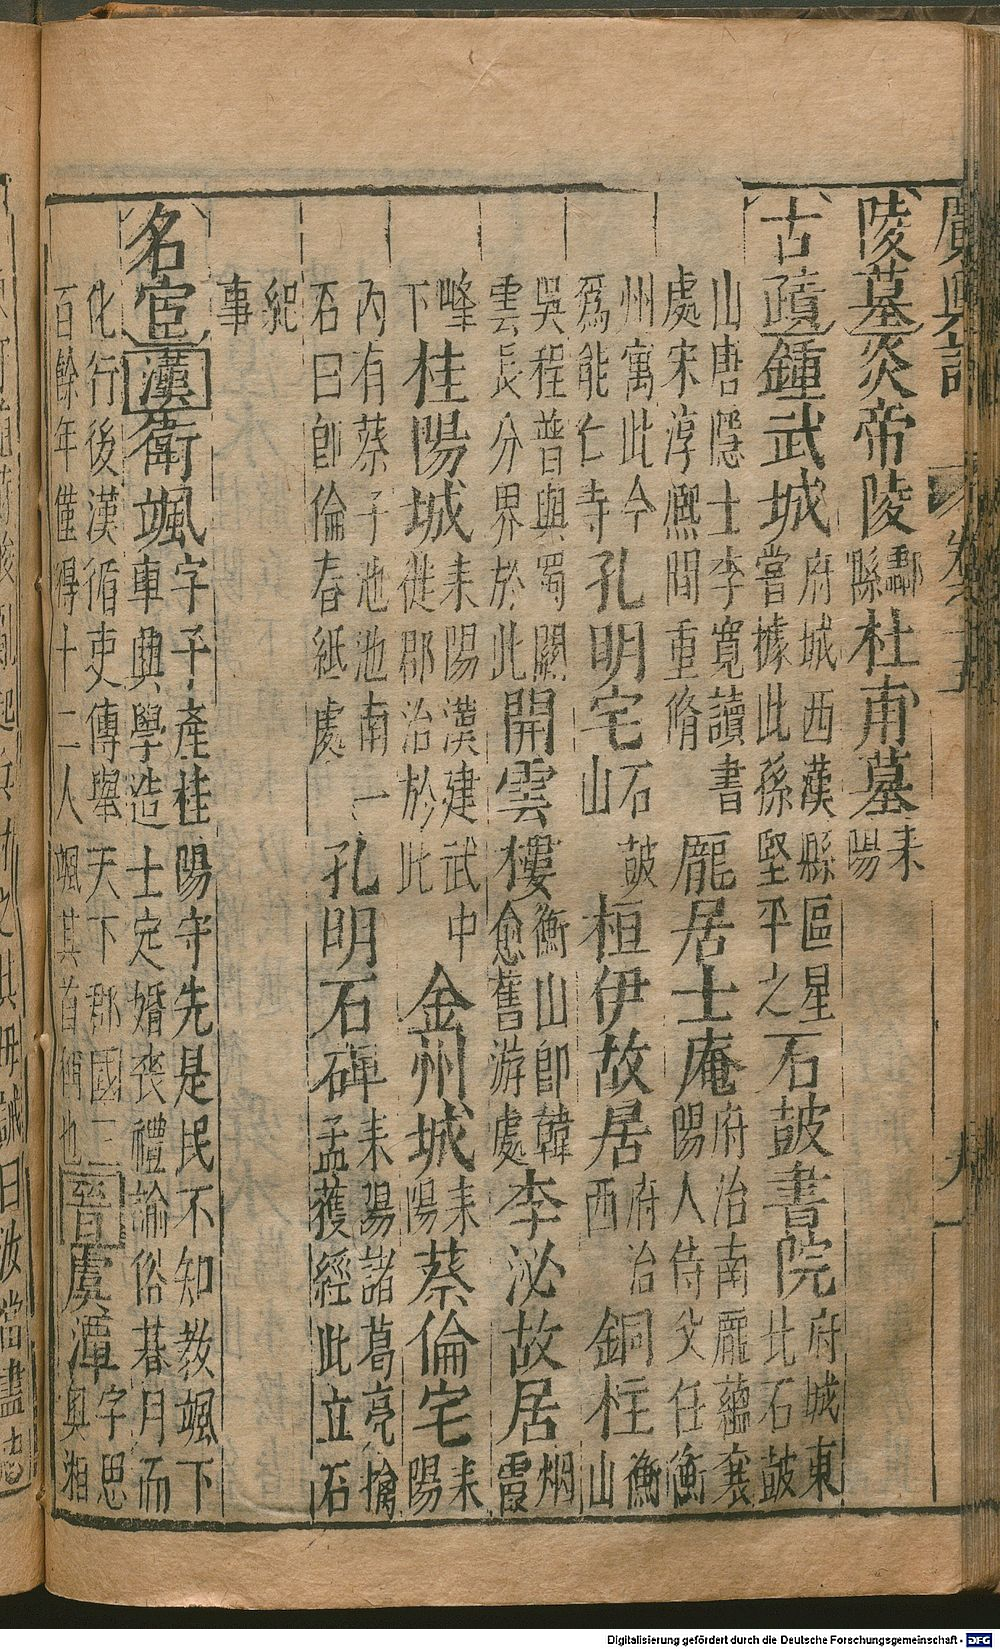 廣輿記 卷十五 九
陵墓 炎帝陵 酃縣 杜甫墓 耒陽
古蹟 鍾武城 府城西漢縣區星嘗據此孫堅平之 石鼓書院 府城東北石鼓
山唐隱士李寬讀書處宋淳熈間重脩 龐居士庵 府治南龐蘊襄陽人侍父任衡
州寓此今爲能仁寺 孔明宅 石鼓山 桓伊故居 府治西 銅柱 衡山
吳程普與蜀關雲長分界於此 開雲樓 衡山卽韓愈舊游處 李泌故居 烟霞
峰下 桂陽城 耒陽漢建武中徙郡治於此 金州城 耒陽 蔡倫宅 耒陽
內有蔡子池池南一石曰卽倫舂紙處 孔明石碑 耒陽諸葛亮擒孟獲經此立石
紀事
名宦 漢 衛颯 字子產桂陽守先是民不知教颯下車興學造士定婚喪禮諭俗朞月而
化行後漢循吏傳舉天下郡國三百餘年僅得十二人颯其首稱也 晉 虞潭 字思奧湘
Digitalisierung gefördert durch die Deutsche Forschungsgemeinschaft - DFG